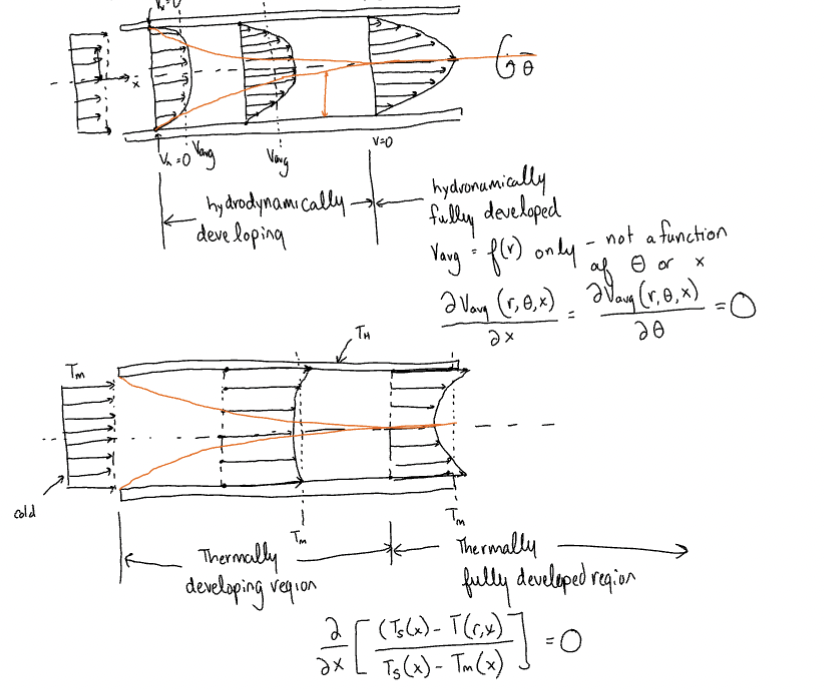 x
θ
V=0
Vₙ=0
Vavg
Vavg
hydrodynamically
developing
hydronamically
fully developed
Vavg = f(r) only - not a function
of θ or x
∂Vavg (r, θ, x) / ∂x = ∂Vavg (r, θ, x) / ∂θ = 0
T_H
Tm
cold
Tm
Tm
Thermally
developing region
Thermally
fully developed region
∂/∂x [ (Ts(x) - T(r,x) / Ts(x) - Tm(x) ] = 0